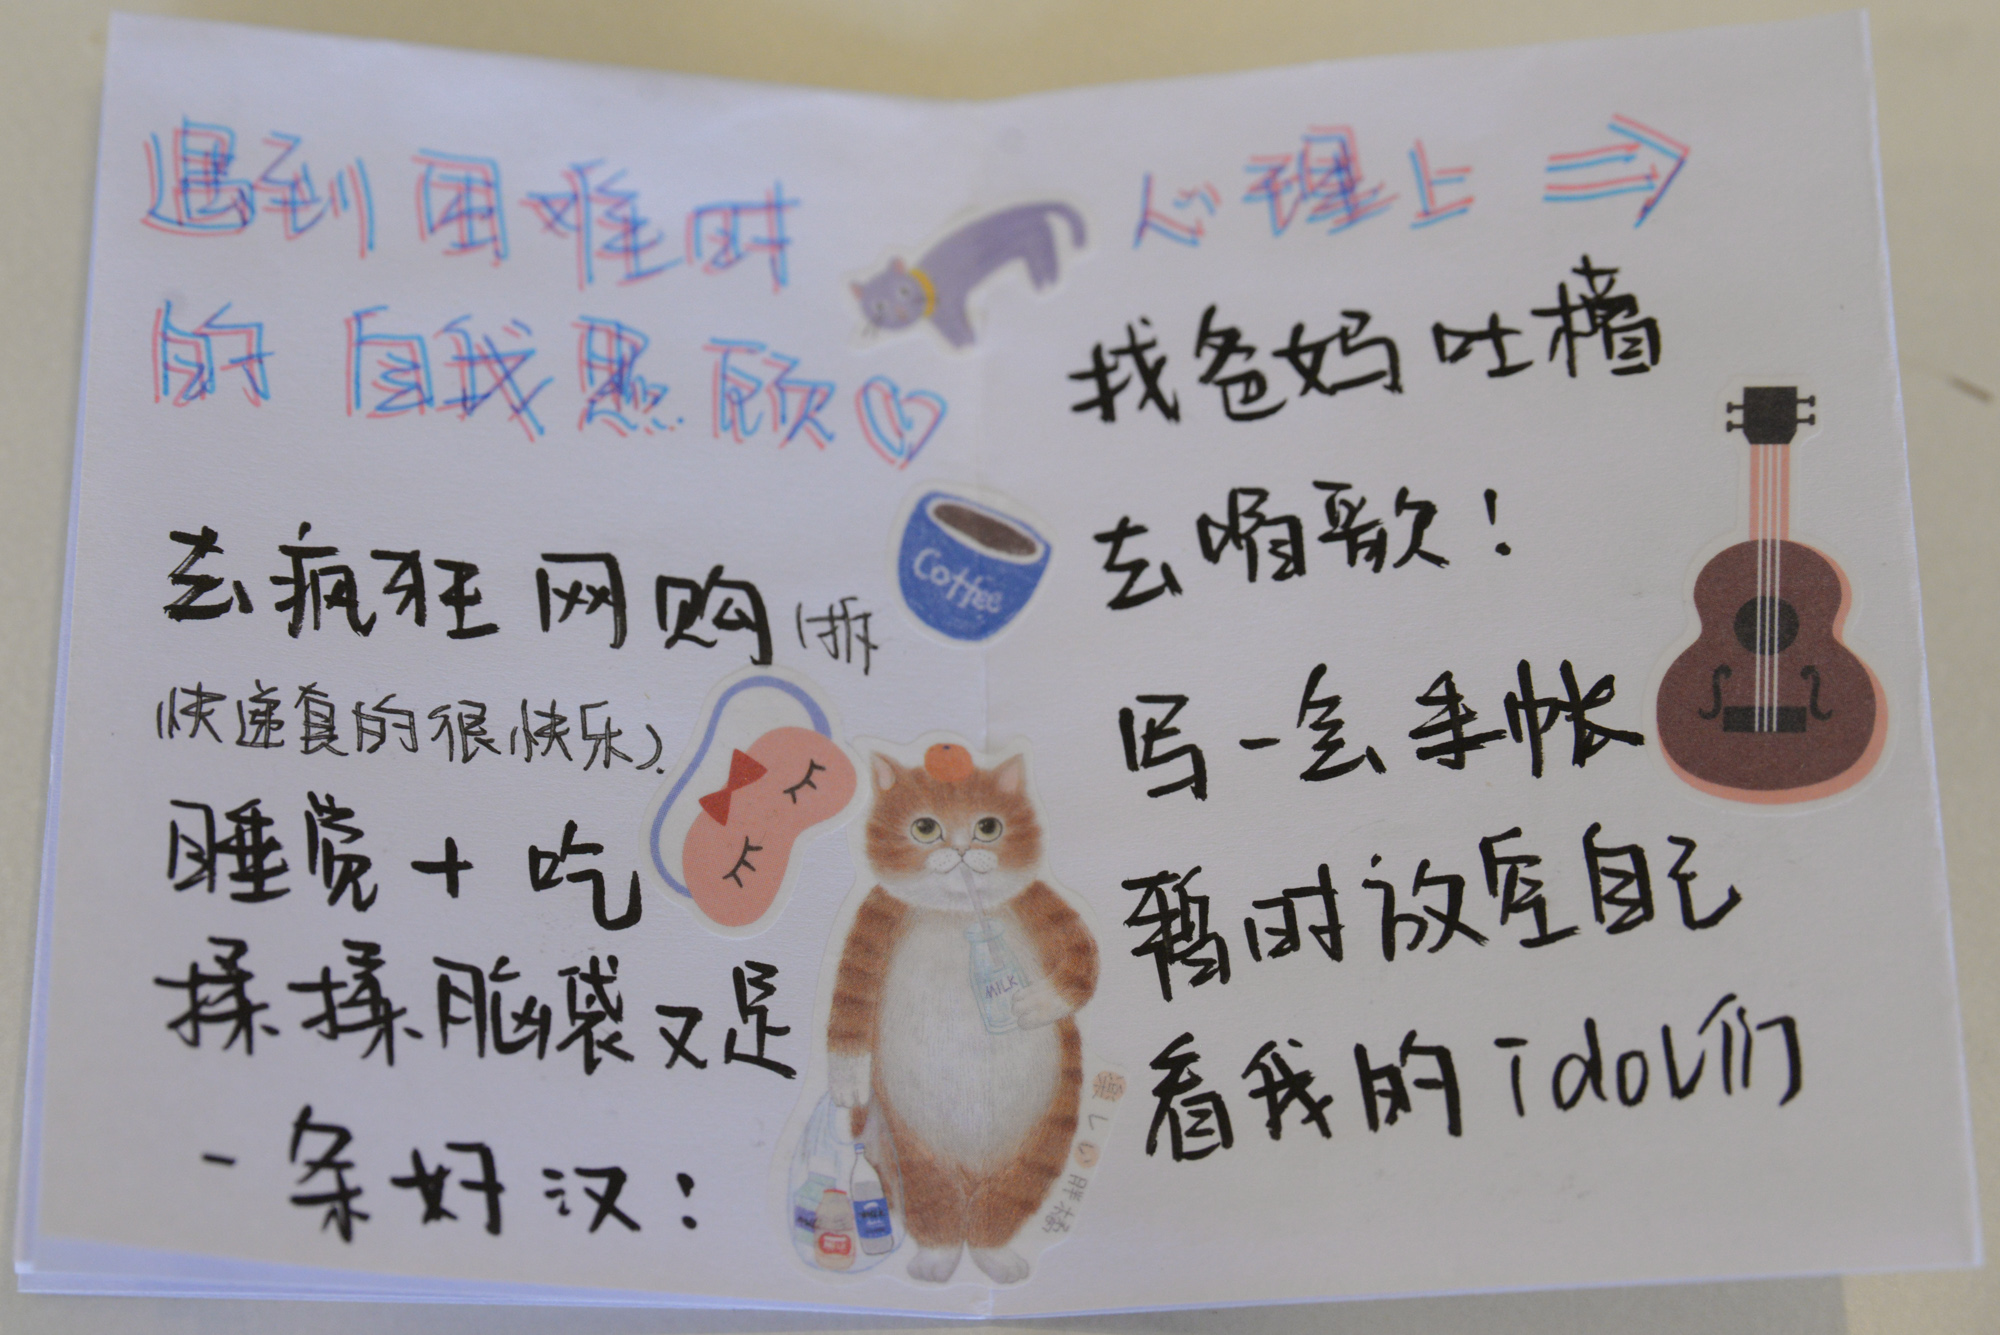 遇到困难时
的自我照顾
去疯狂网购(拆
快递真的很快乐)
睡觉+吃
揉揉脑袋又是
一条好汉:
心理上⇒
找爸妈吐槽
去唱歌!
写一会手帐
暂时放空自己
看我的idol们
Coffee
MILK
胖橘